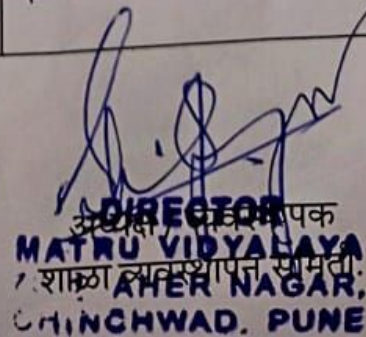 DIRECTOR
अध्यक्ष
MATRU VIDYALAYA
शाळा व्यवस्थापन समिती.
AHER NAGAR,
CHINCHWAD. PUNE